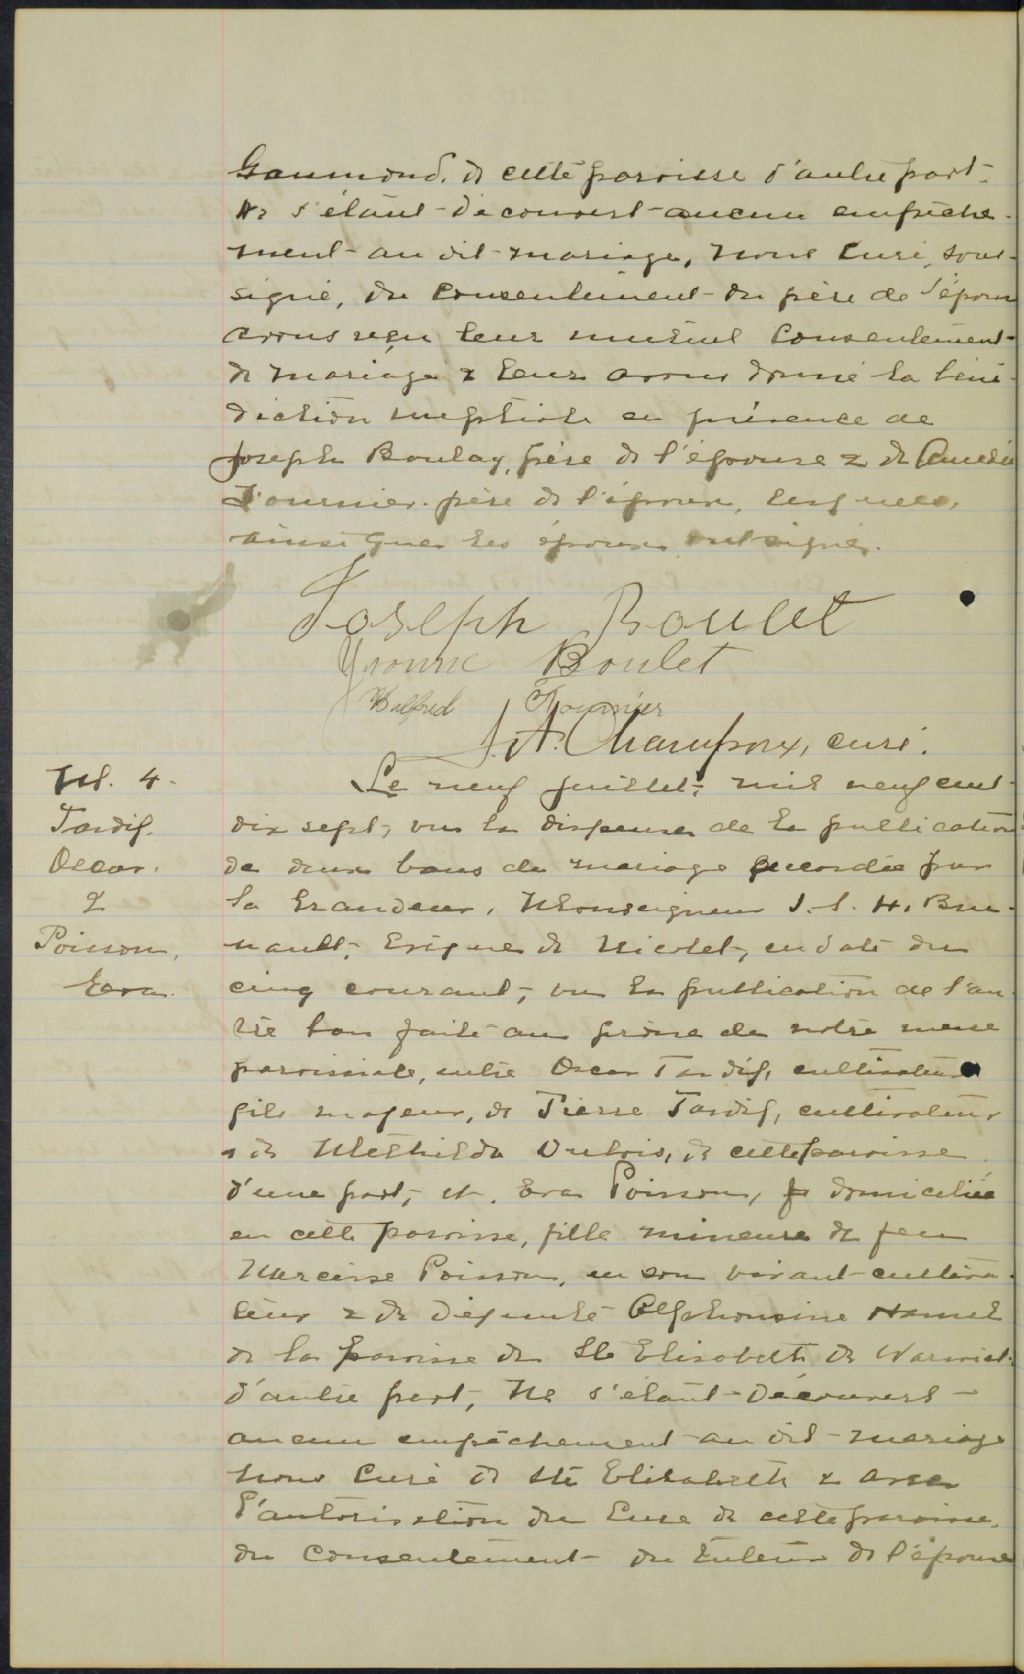 Gaumond. de cette paroisse d'autre part.
Ne s'étant découvert aucun empêche-
ment au dit mariage, nous Curé, sous-
signé, du Consentement du père de l'époux
avons reçu leur mutuel Consentement
de mariage & leur avons donné la béné-
diction nuptiale en présence de
Joseph Boulay, père de l'épouse & de Amédée
Fournier père de l'époux, lesquels,
ainsi que les époux ont signés.
Joseph Boulet
Yvonne Boulet
Wilfred Fournier
J. A. Champoux, curé.
M. 4.
Tardif.
Oscar.
&
Poisson,
Eva.
Le neuf juillet, mil neuf cent
dix sept, vu la dispense de la publication
de deux bans de mariage accordée par
Sa Grandeur, Monseigneur J. S. H. Bru-
nault, Evêque de Nicolet, en date du
cinq courant, vu la publication de l'au
tre ban faite au prône de notre messe
paroissiale, entre Oscar Tardif, cultivateur
fils majeur, de Pierre Tardif, cultivateur
& de Mathilda Dubois, de cette paroisse
d'une part, et, Eva Poisson, domiciliée
en cette paroisse, fille mineure de feu
Narcisse Poisson, en son vivant cultiva-
teur & de défunte Alphonsine Hamel
de la paroisse de Ste Elisabeth de Warwick
d'autre part, Ne s'étant découvert
aucun empêchement au dit mariage
nous Curé de Ste Elisabeth & avec
l'autorisation du Curé de cette paroisse,
du consentement du tuteur de l'épouse